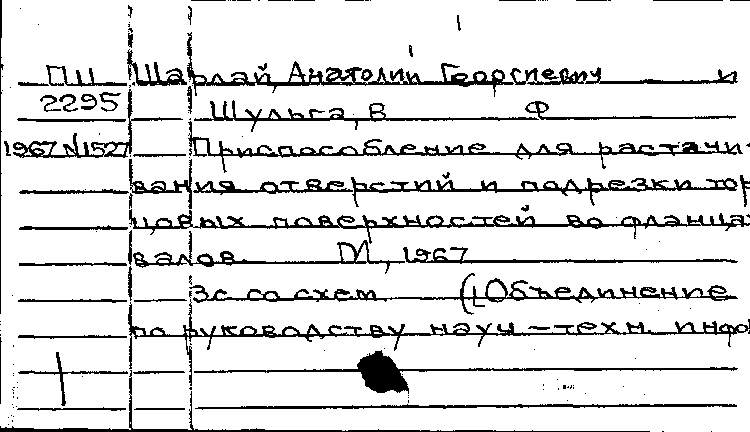 ПШ Шарлай, Анатолий Георгиевич и
2295 Шульга, В Ф
1967 N1527 Приспособление для растачи-
вания отверстий и подрезки тор
цовых поверхностей во фланцах
валов. М, 1967
3с со схем ([Объединение
по руководству науч-техн. инфо